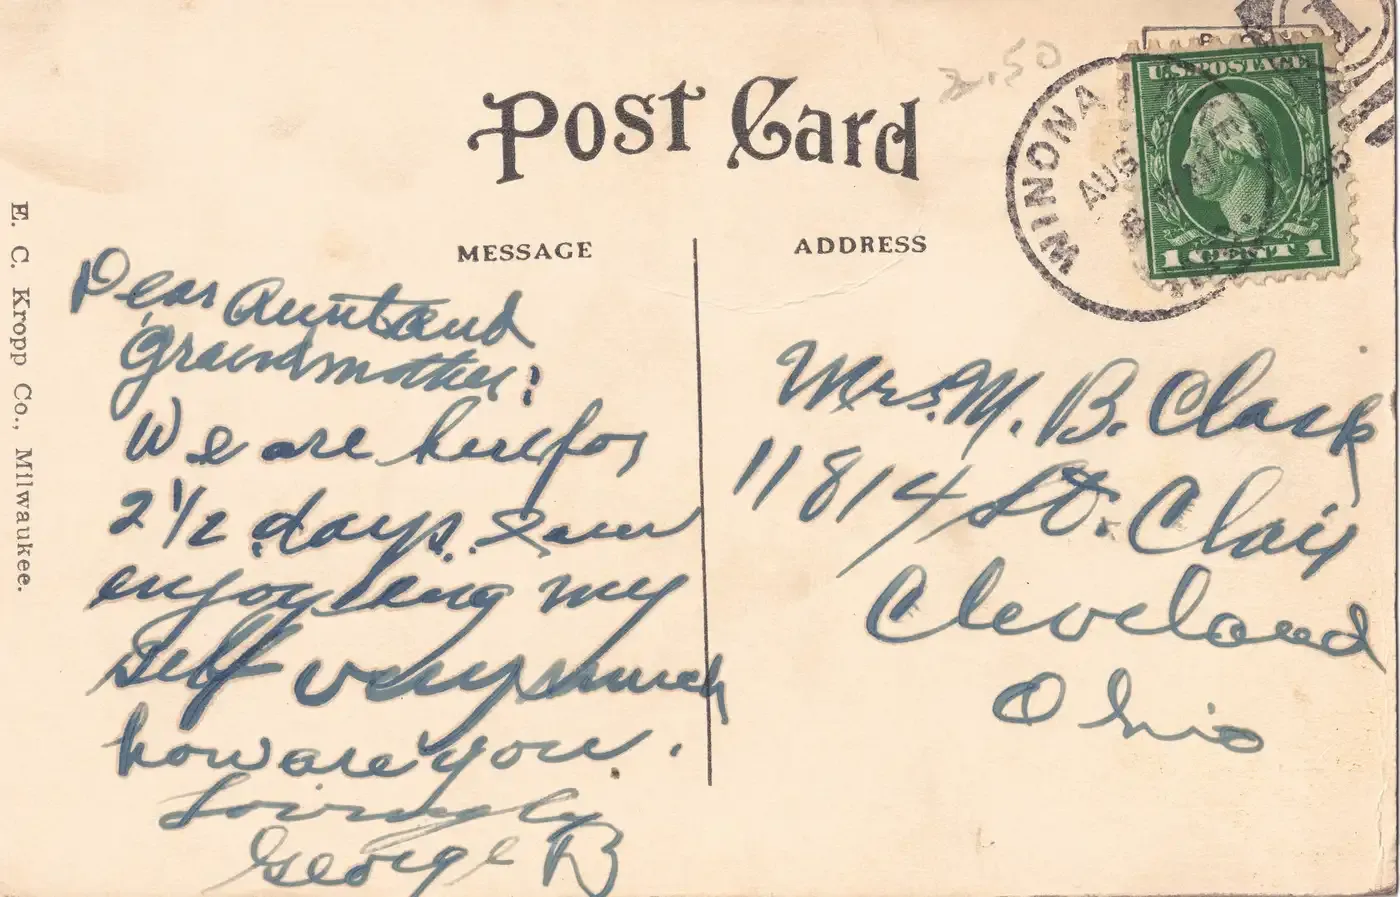 Post Card
2.50
WINONA
AUG
U.S. POSTAGE
1 CENT 1
MESSAGE
ADDRESS
E. C. Kropp Co., Milwaukee.
Dear Aunt and
Grandmother:
We are here for
2 1/2 days. I am
enjoying my
self very much
how are you.
Lovingly
George B
Mrs. M. B. Clark
11814 St. Clair
Cleveland
Ohio